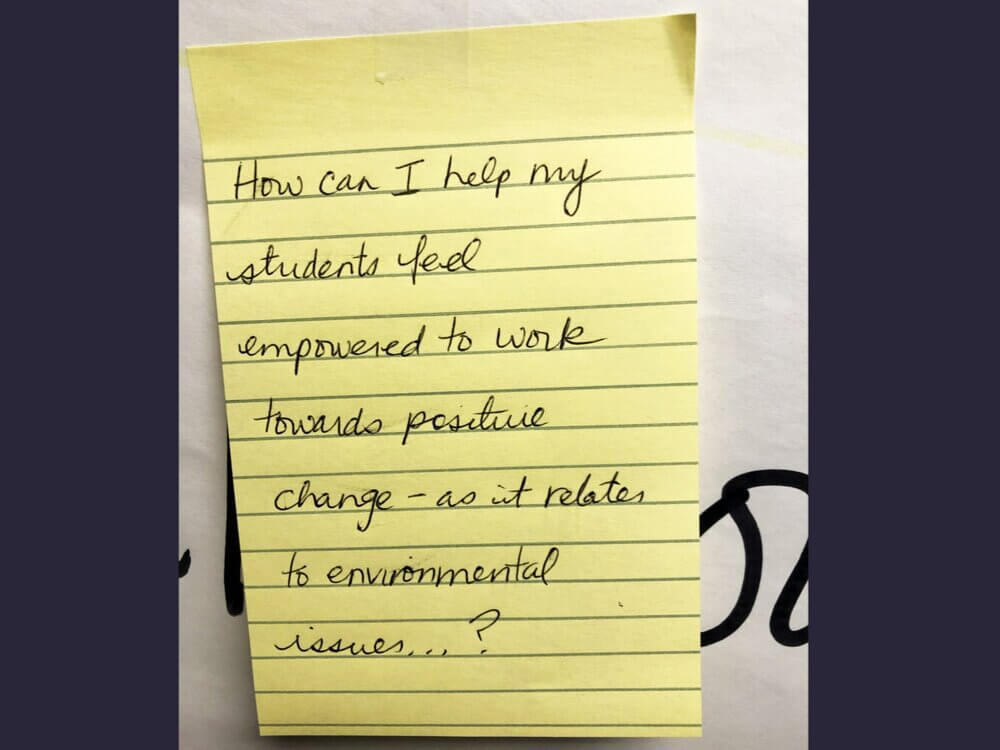 How can I help my
students feel
empowered to work
towards positive
change - as it relates
to environmental
issues... ?